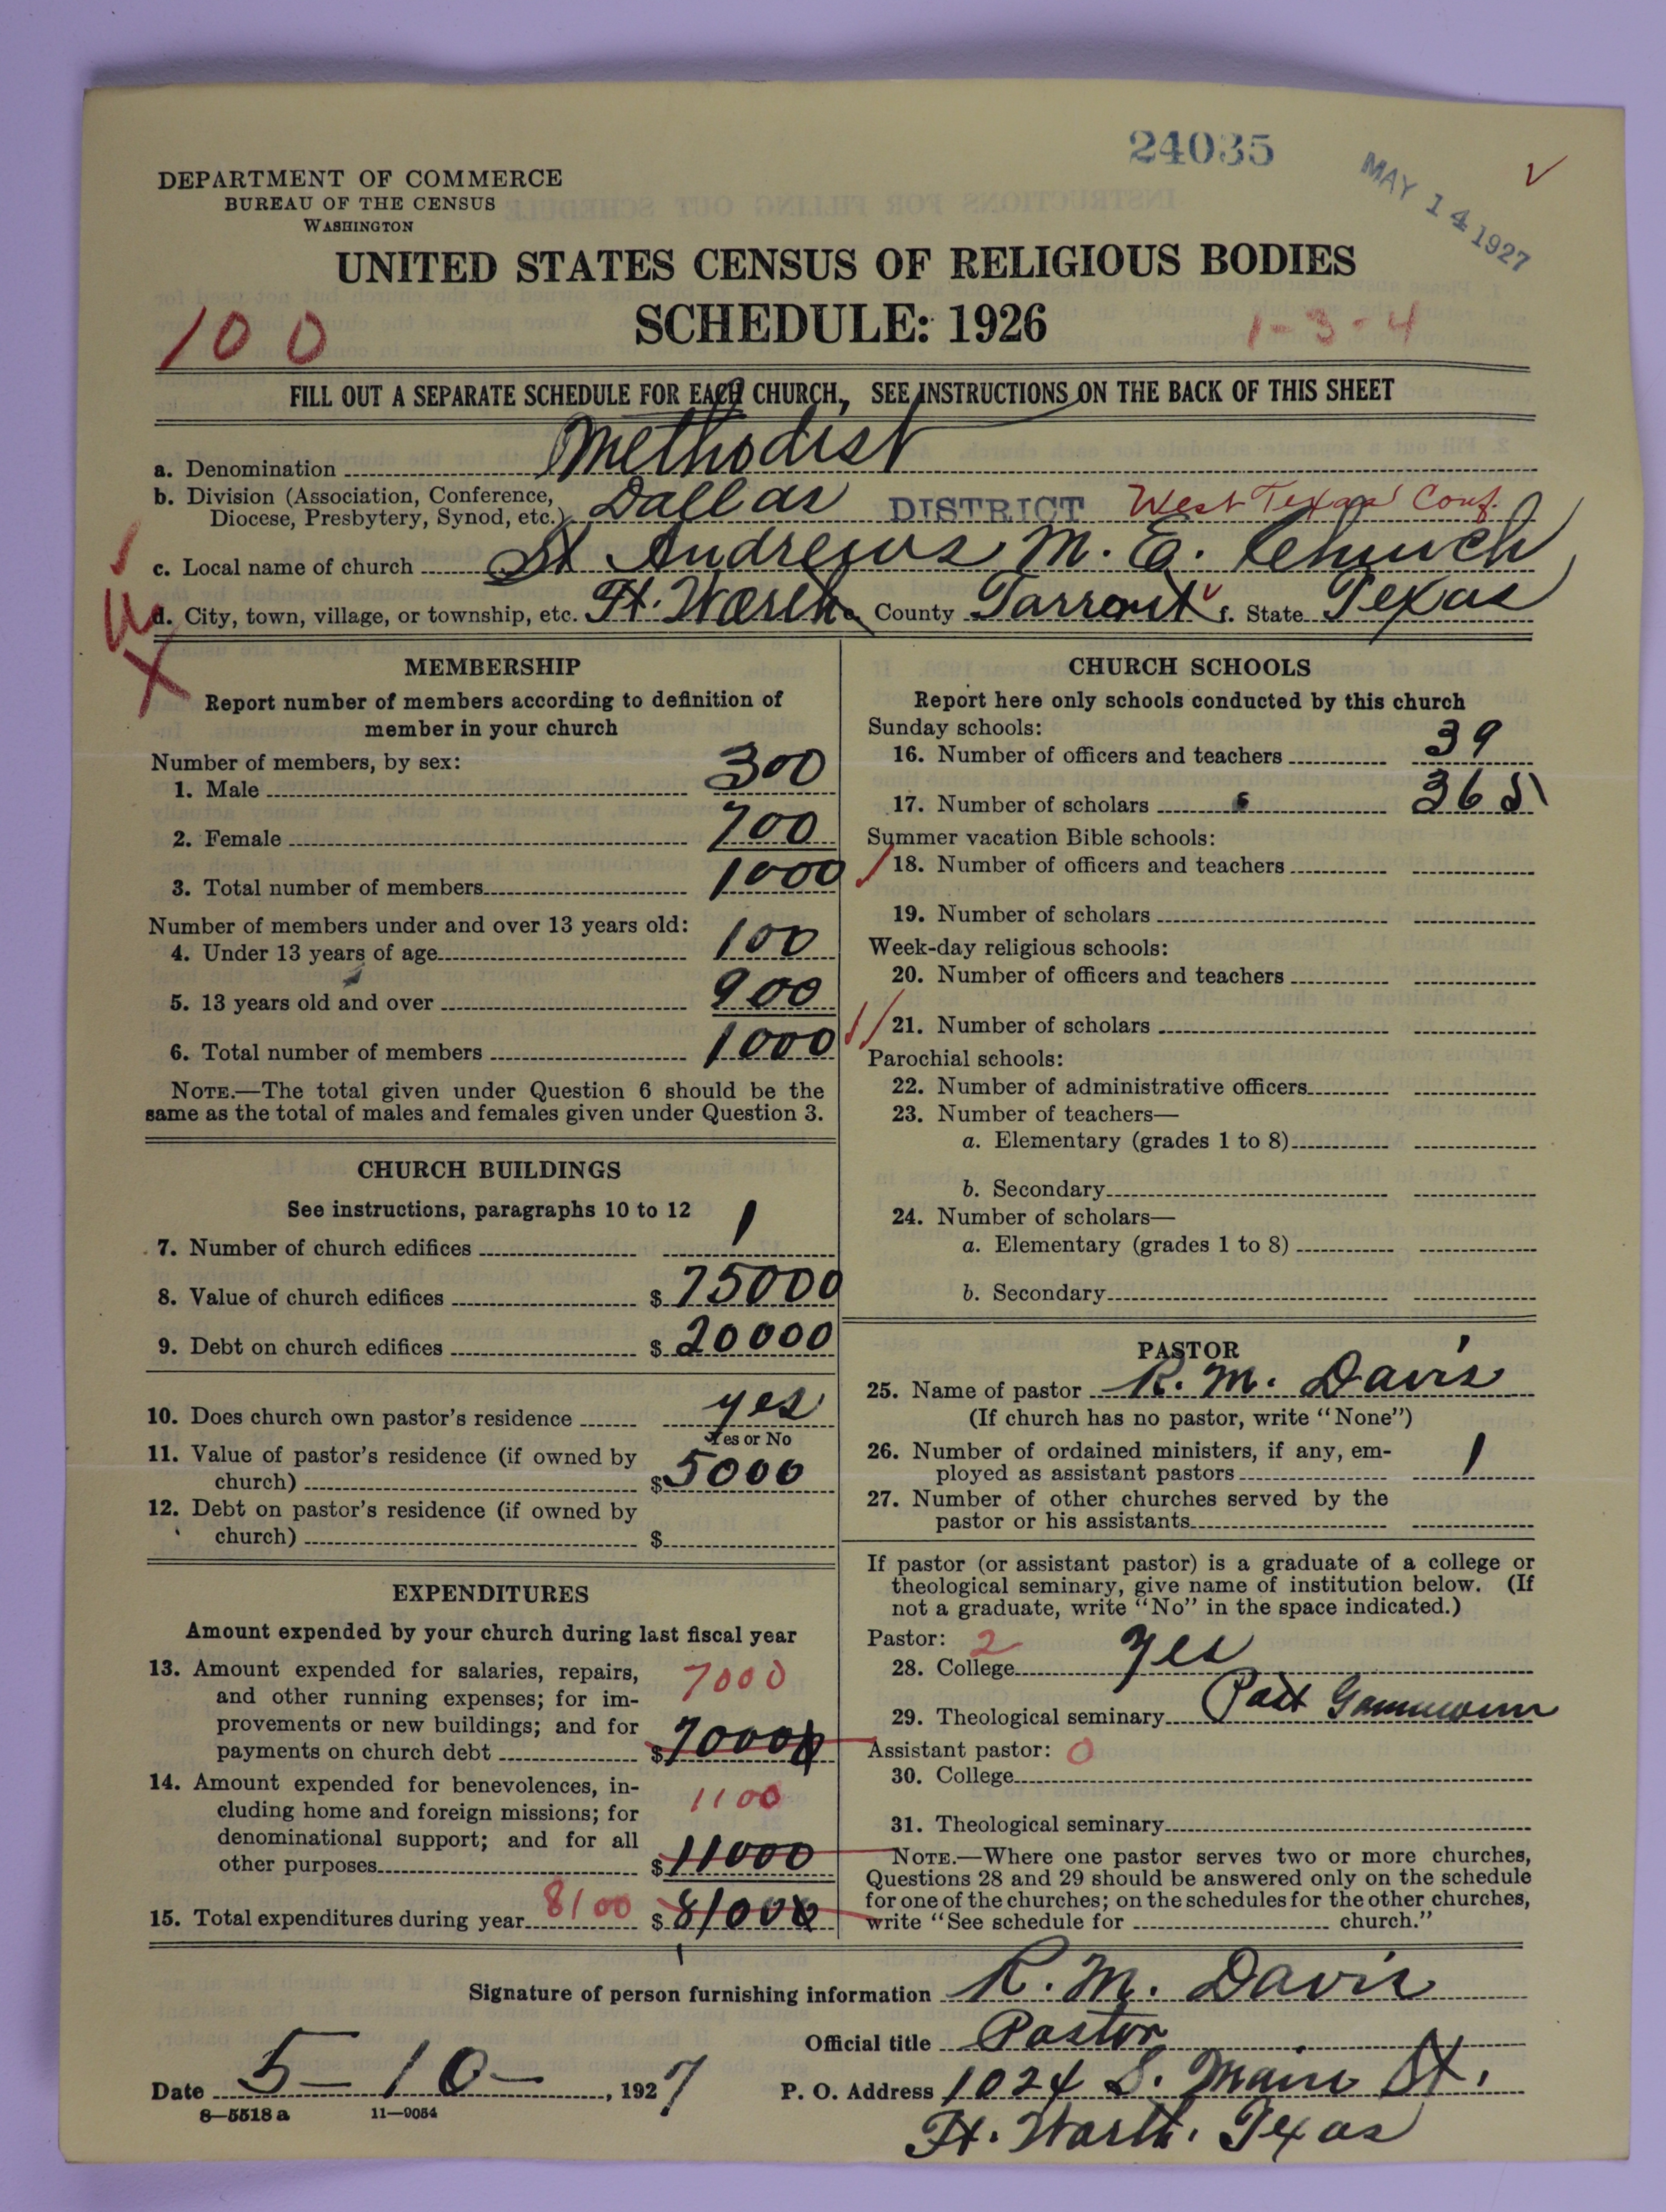 24035
MAY 14 1927
DEPARTMENT OF COMMERCE
BUREAU OF THE CENSUS
WASHINGTON
UNITED STATES CENSUS OF RELIGIOUS BODIES
SCHEDULE: 1926
100
1-3-4
FILL OUT A SEPARATE SCHEDULE FOR EACH CHURCH, SEE INSTRUCTIONS ON THE BACK OF THIS SHEET
a. Denomination Methodist
b. Division (Association, Conference, Diocese, Presbytery, Synod, etc.) Dallas DISTRICT West Texas Conf.
c. Local name of church St Andrews M. E. Church
d. City, town, village, or township, etc. Ft. Worth e. County Tarrant f. State Texas
MEMBERSHIP
Report number of members according to definition of
member in your church
Number of members, by sex:
1. Male 300
2. Female 700
3. Total number of members 1000
Number of members under and over 13 years old:
4. Under 13 years of age 100
5. 13 years old and over 900
6. Total number of members 1000
NOTE.—The total given under Question 6 should be the
same as the total of males and females given under Question 3.
CHURCH BUILDINGS
See instructions, paragraphs 10 to 12
7. Number of church edifices 1
8. Value of church edifices $ 75000
9. Debt on church edifices $ 20000
10. Does church own pastor's residence yes
Yes or No
11. Value of pastor's residence (if owned by
church) $ 5000
12. Debt on pastor's residence (if owned by
church) $
EXPENDITURES
Amount expended by your church during last fiscal year
13. Amount expended for salaries, repairs,
and other running expenses; for im-
provements or new buildings; and for
payments on church debt $ 70000
7000
14. Amount expended for benevolences, in-
cluding home and foreign missions; for
denominational support; and for all
other purposes $ 11000
1100
15. Total expenditures during year 8100 $ 81000
CHURCH SCHOOLS
Report here only schools conducted by this church
Sunday schools:
16. Number of officers and teachers 39
17. Number of scholars 365
Summer vacation Bible schools:
18. Number of officers and teachers
19. Number of scholars
Week-day religious schools:
20. Number of officers and teachers
21. Number of scholars
Parochial schools:
22. Number of administrative officers
23. Number of teachers—
a. Elementary (grades 1 to 8)
b. Secondary
24. Number of scholars—
a. Elementary (grades 1 to 8)
b. Secondary
PASTOR
25. Name of pastor R. M. Davis
(If church has no pastor, write "None")
26. Number of ordained ministers, if any, em-
ployed as assistant pastors 1
27. Number of other churches served by the
pastor or his assistants
If pastor (or assistant pastor) is a graduate of a college or
theological seminary, give name of institution below. (If
not a graduate, write "No" in the space indicated.)
Pastor: 2
28. College yes
29. Theological seminary Part
Assistant pastor: 0
30. College
31. Theological seminary
NOTE.—Where one pastor serves two or more churches,
Questions 28 and 29 should be answered only on the schedule
for one of the churches; on the schedules for the other churches,
write "See schedule for church."
Signature of person furnishing information R. M. Davis
Official title Pastor
Date 5-10-, 1927
P. O. Address 1024 S. Main St.
Ft. Worth. Texas
8-5518 a 11-9054